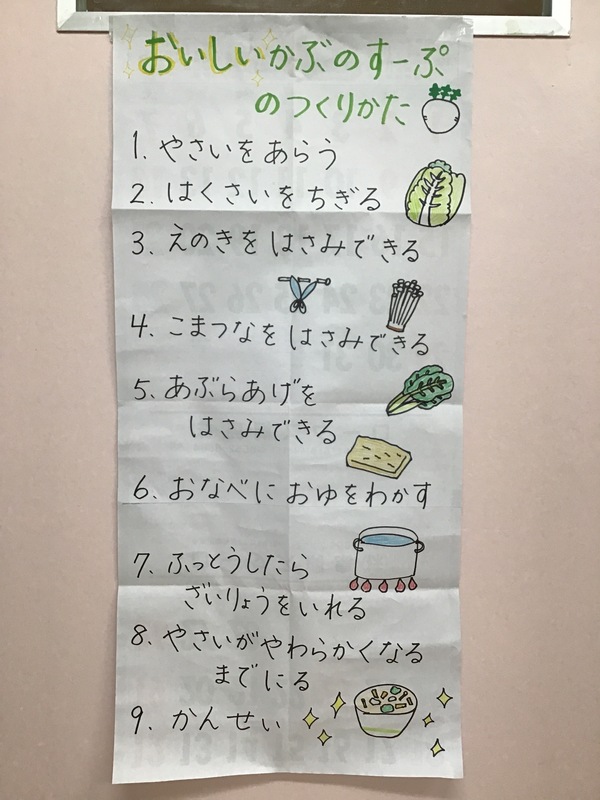 おいしいかぶのすーぷ
のつくりかた
1. やさいをあらう
2. はくさいをちぎる
3. えのきをはさみできる
4. こまつなをはさみできる
5. あぶらあげを
はさみできる
6. おなべにおゆをわかす
7. ふっとうしたら
ざいりょうをいれる
8. やさいがやわらかくなる
までにる
9. かんせい